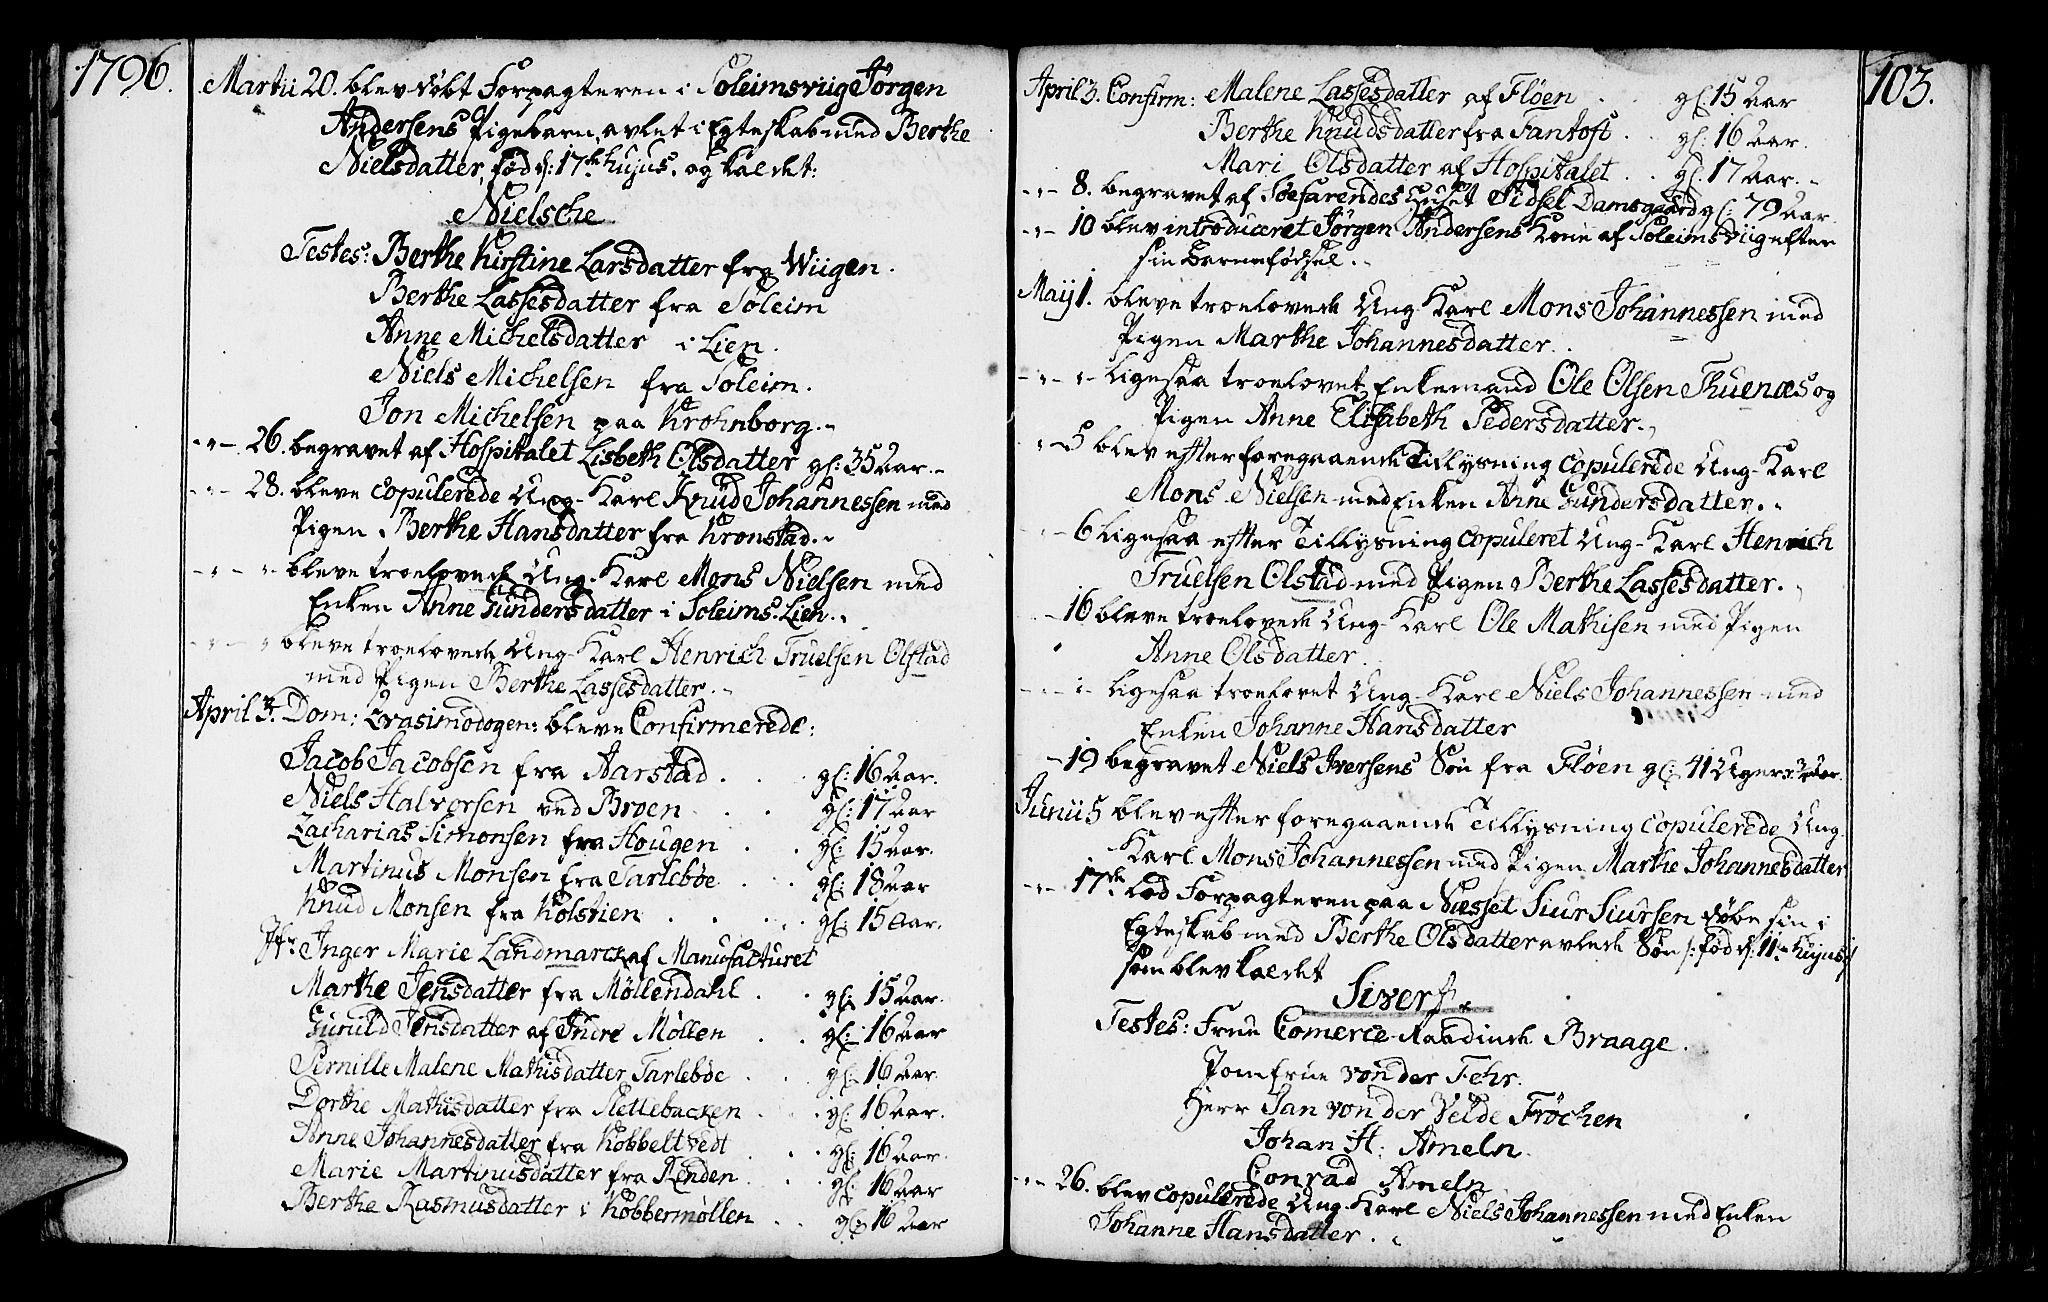 1796.
Martii 20. blev döbt Forpagteren i Soleimsviig Jørgen
Andersens Pigebarn, avlet i Egteskab med Berthe
Nielsdatter, föd d: 17de hujus. og kaldet:
Nielsche
Testes: Berthe Kirstine Larsdatter fra Wiigen.
Berthe Lassesdatter fra Soleim
Anne Michelsdatter i Lien.
Niels Michelsen fra Soleim.
Jon Michelsen paa Krohnborg.
-"- 26. begravet af Hospitalet Lisbeth Olsdatter gl: 35 Aar.
-"- 28. bleve copulerede Ung-Karl Knud Johannessen med
Pigen Berthe Hansdatter fra Kronstad.
-"- " bleve troelovede Ung-Karl Mons Nielsen med
Enken Anne Gundersdatter i Soleims-Lien.
-"- " bleve troelovede Ung-Karl Henrich Truelsen Olstad
med Pigen Berthe Lassesdatter.
April 3. Dom: Qvasimodogen: bleve Confirmerede:
Jacob Jacobsen fra Aarstad . . . gl: 16 Aar.
Niels Halvorsen ved Broen . . gl: 17 Aar
Zacharias Simonsen fra Hougen . . gl: 15 Aar.
Martinus Monsen fra Tarlebøe . . gl: 18 Aar
Knud Monsen fra Kolstien . . . gl: 15 Aar.
Jfr Inger Marie Landmarck af Manufacturet
Marthe Jensdatter fra Møllendahl . . gl: 15 Aar.
Gunild Jensdatter af Indre Møllen . . gl: 16 Aar
Pernille Malene Mathisdatter Tarlebøe . . gl: 16 Aar.
Dorthe Mathisdatter fra Slettebacken . . gl: 16 Aar.
Anne Johannesdatter fra Kobbeltvedt . . gl: 16 Aar.
Marie Martinusdatter fra Lien . . gl: 16 Aar
Berthe Rasmusdatter i Kobbermøllen . . gl: 16 Aar
103.
April 3. Confirm: Malene Lassesdatter af Fløen . . gl: 15 Aar
Berthe Knudsdatter fra Fantoft . . gl: 16 Aar.
Mari Olsdatter af Hospitalet . . gl: 17 Aar.
-"- 8. begravet af Söefarendes Huset Sidsel Damsgaard gl: 79 Aar.
-"- 10 blev introduceret Jørgen Andersens Kone af Soleimsviig efter
sin Barnefödsel.
Maij 1. bleve troelovede Ung-Karl Mons Johannessen med
Pigen Marthe Johannesdatter.
-"- " ligesaa troelovet Enkemand Ole Olsen Thuenæs og
Pigen Anne Elisabeth Pedersdatter.
" 5 blev efter foregaaende Tillysning copulerede Ung-Karl
Mons Nielsen med Enken Anne Gundersdatter.
- 6 ligesaa efter Tillysning copuleret Ung-Karl Henrich
Truelsen Olstad med Pigen Berthe Lassesdatter.
- 16 bleve troelovede Ung-Karl Ole Mathisen med Pigen
Anne Olsdatter.
- " - ligesaa troelovet Ung-Karl Niels Johannessen med
Enken Johanne Hansdatter
- 19 begravet Niels Iversens Sön fra Fløen gl: 41 Uger
Junii 5 blev efter foregaaende Tillysning copulerede Ung-
Karl Mons Johannessen med Pigen Marthe Johannesdatter
-"- 17de lod Forpagteren paa Næsset Siur Siursen döbe sin i
Egteskab med Berthe Olsdatter avlede Sön /: föd d: 11te hujus :/
som blev kaldet
Sivert.
Testes: Frue Comerce-Raadinde Braage.
Jomfrue von der Fehr.
Herr Jan von der Velde Fröchen
Johan H: Ameln.
Conrad Ameln
-"- 26. blev copulerede Ung-Karl Niels Johannessen med Enken
Johanne Hansdatter.